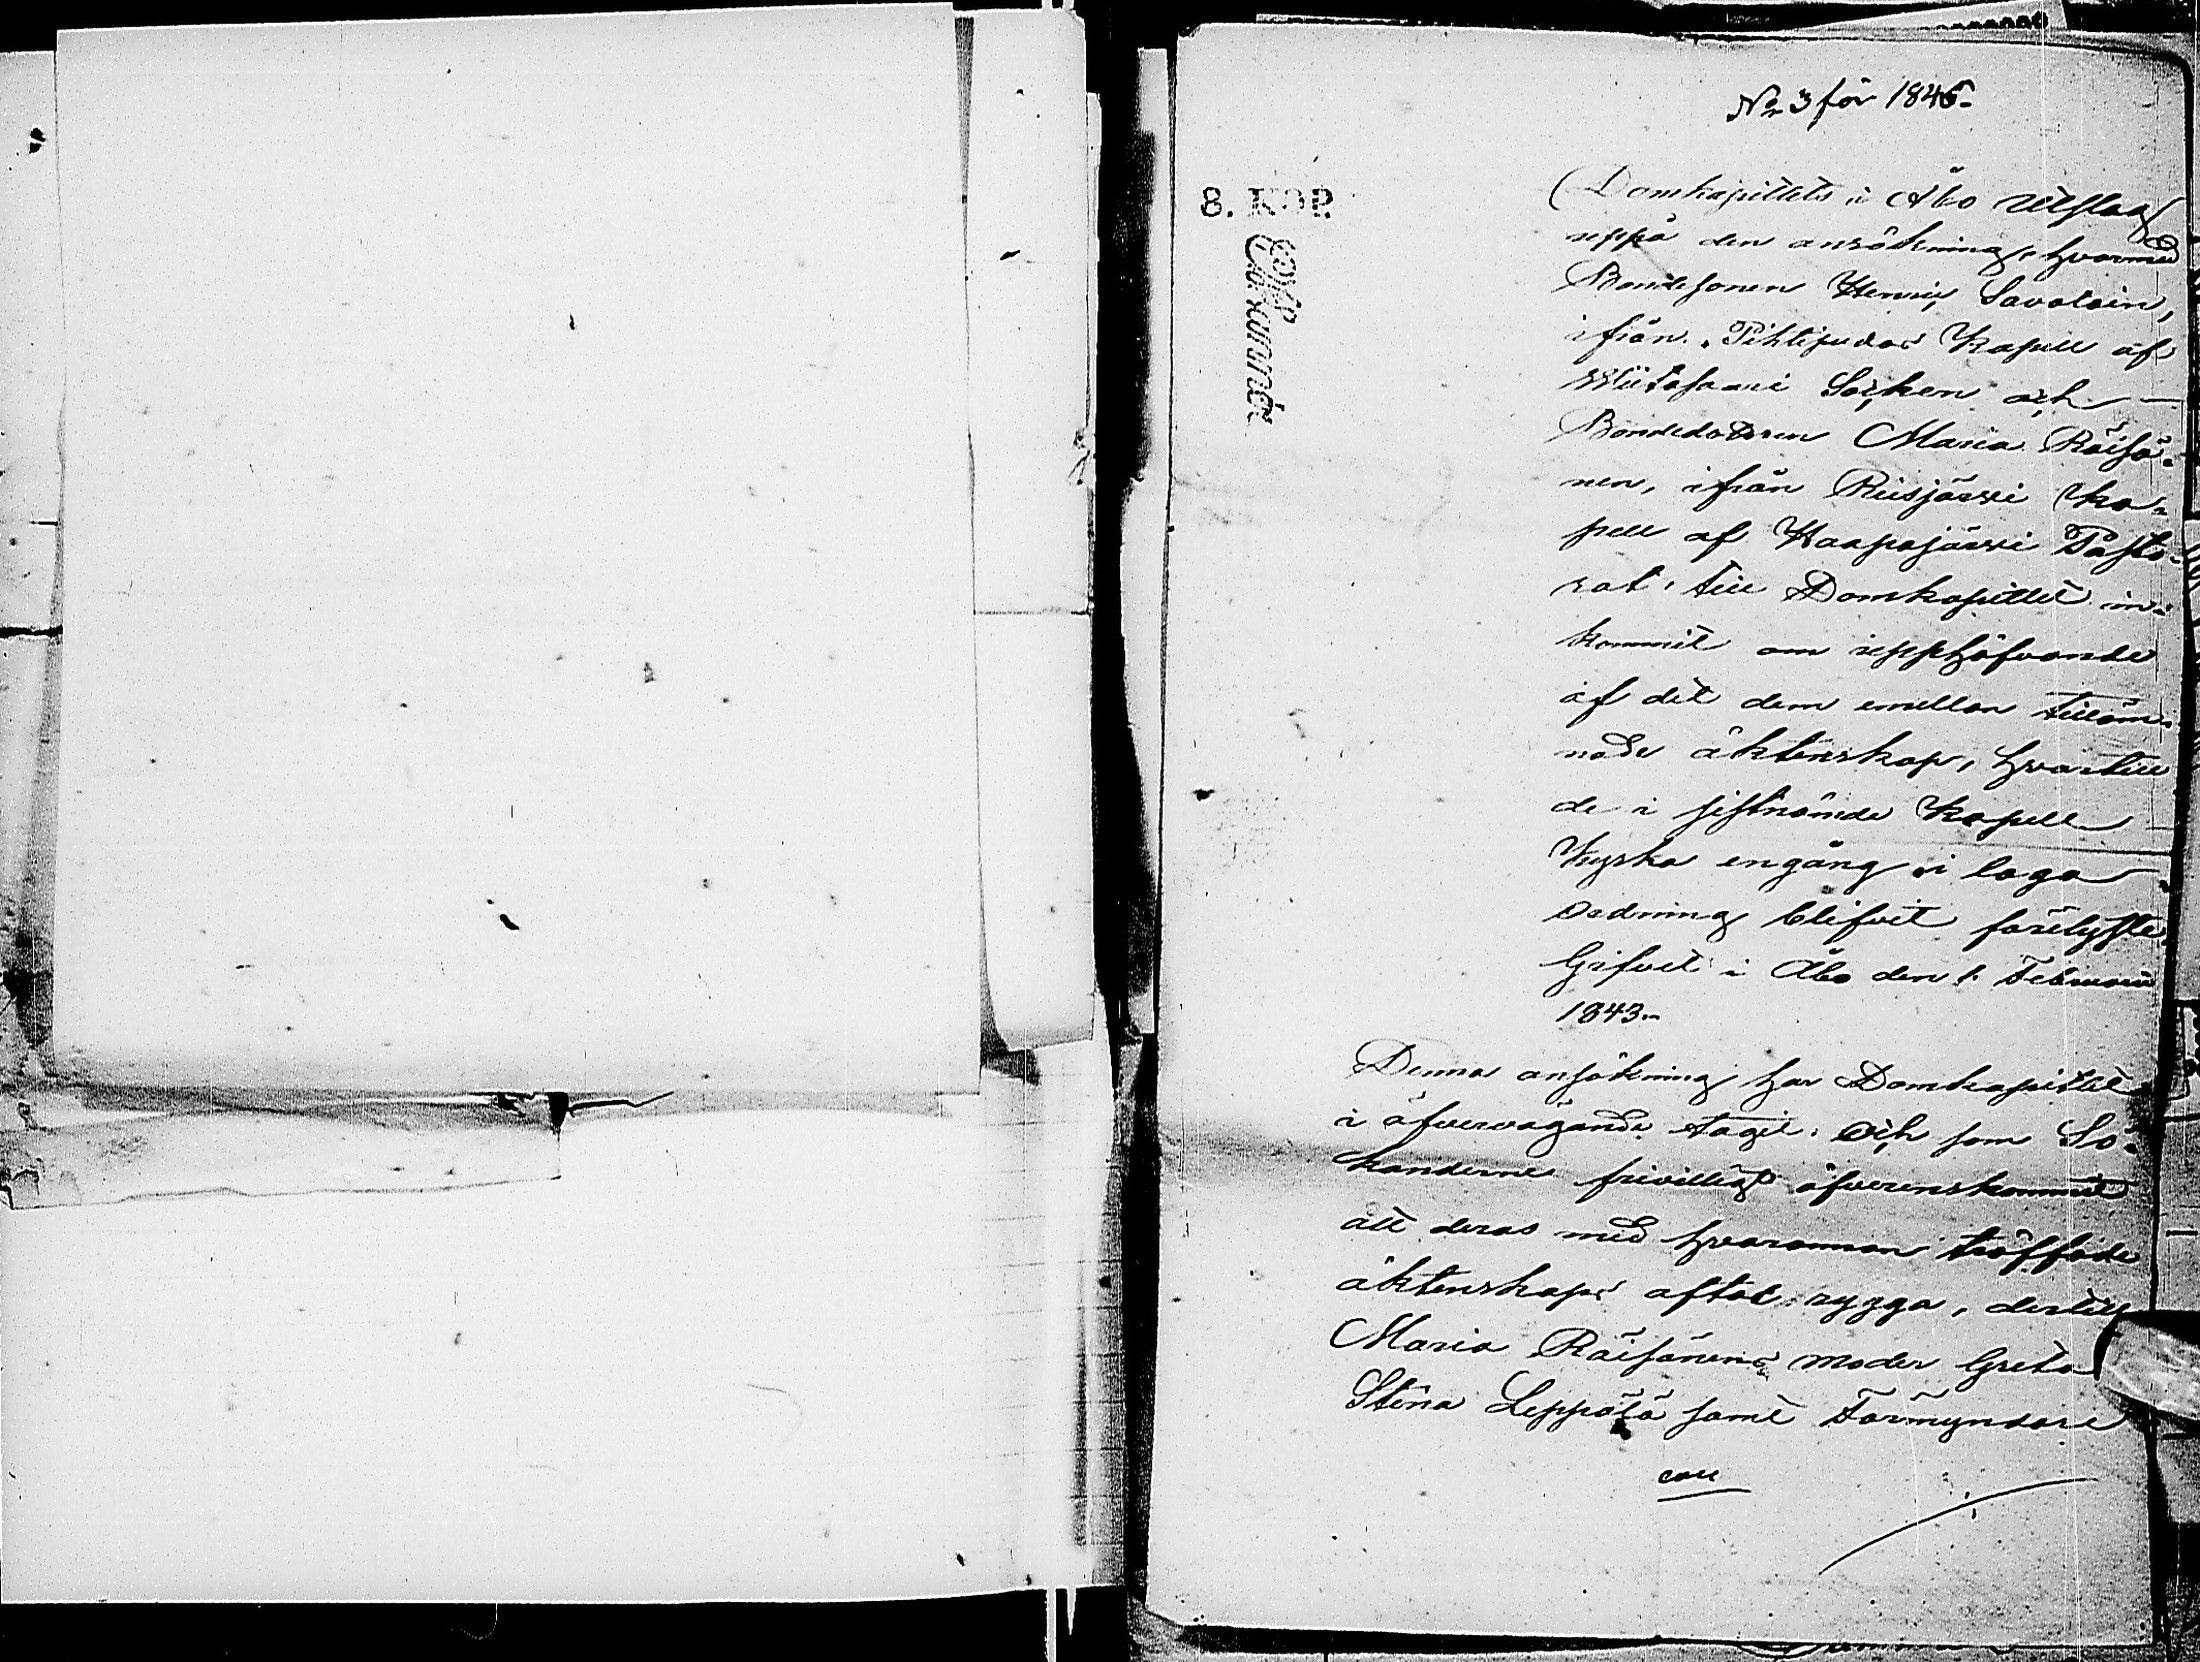 No 3 för 1845.
8. KOP.
Domkapitlets i Åbo Utslag
uppå den ansökning, hvarmed
Bondesonen Henric Savolain,
ifrån Pihtipudas Kapell af
Wiitasaari Socken och
Bondedottren Maria Räisä-
nen, ifrån Reisjärvi Ka-
pell af Haapajärvi Pasto-
rat, till Domkapitlet in-
kommit om upphäfvande
af det dem emellan tilläm-
nade äktenskap, hvartill
de i sistnämde Kapells
Kyrka en gång i laga
ordning blifvit förelyste.
Gifvet i Åbo den 1. Februarii
1843.
Denna ansökning har Domkapitlet
i öfvervägande tagit; Och som Sö-
kanderne frivilligt öfverenskommit
att deras med hvarannan träffade
äktenskaps aftal rygga, dertill
Maria Räisänens moder Greta
Stina Leppälä samt Förmyndare